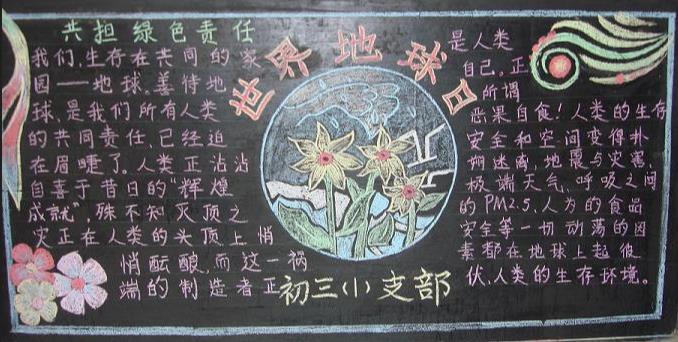 共担绿色责任
世界地球日
我们,生存在共同的家
园——地球。善待地
球,是我们所有人类
的共同责任,已经迫
在眉睫了。人类正沾沾
自喜于昔日的“辉煌
成就”,殊不知灭顶之
灾正在人类的头顶上悄
悄酝酿,而这一祸
端的制造者正
是人类
自己。正
所谓
恶果自食!人类的生存
安全和空间变得扑
朔迷离,地震与灾害
极端天气,呼吸之间
的PM2.5,人为的食品
安全等一切动荡的因
素都在地球上起彼
伏,人类的生存环境。
初三(1)支部